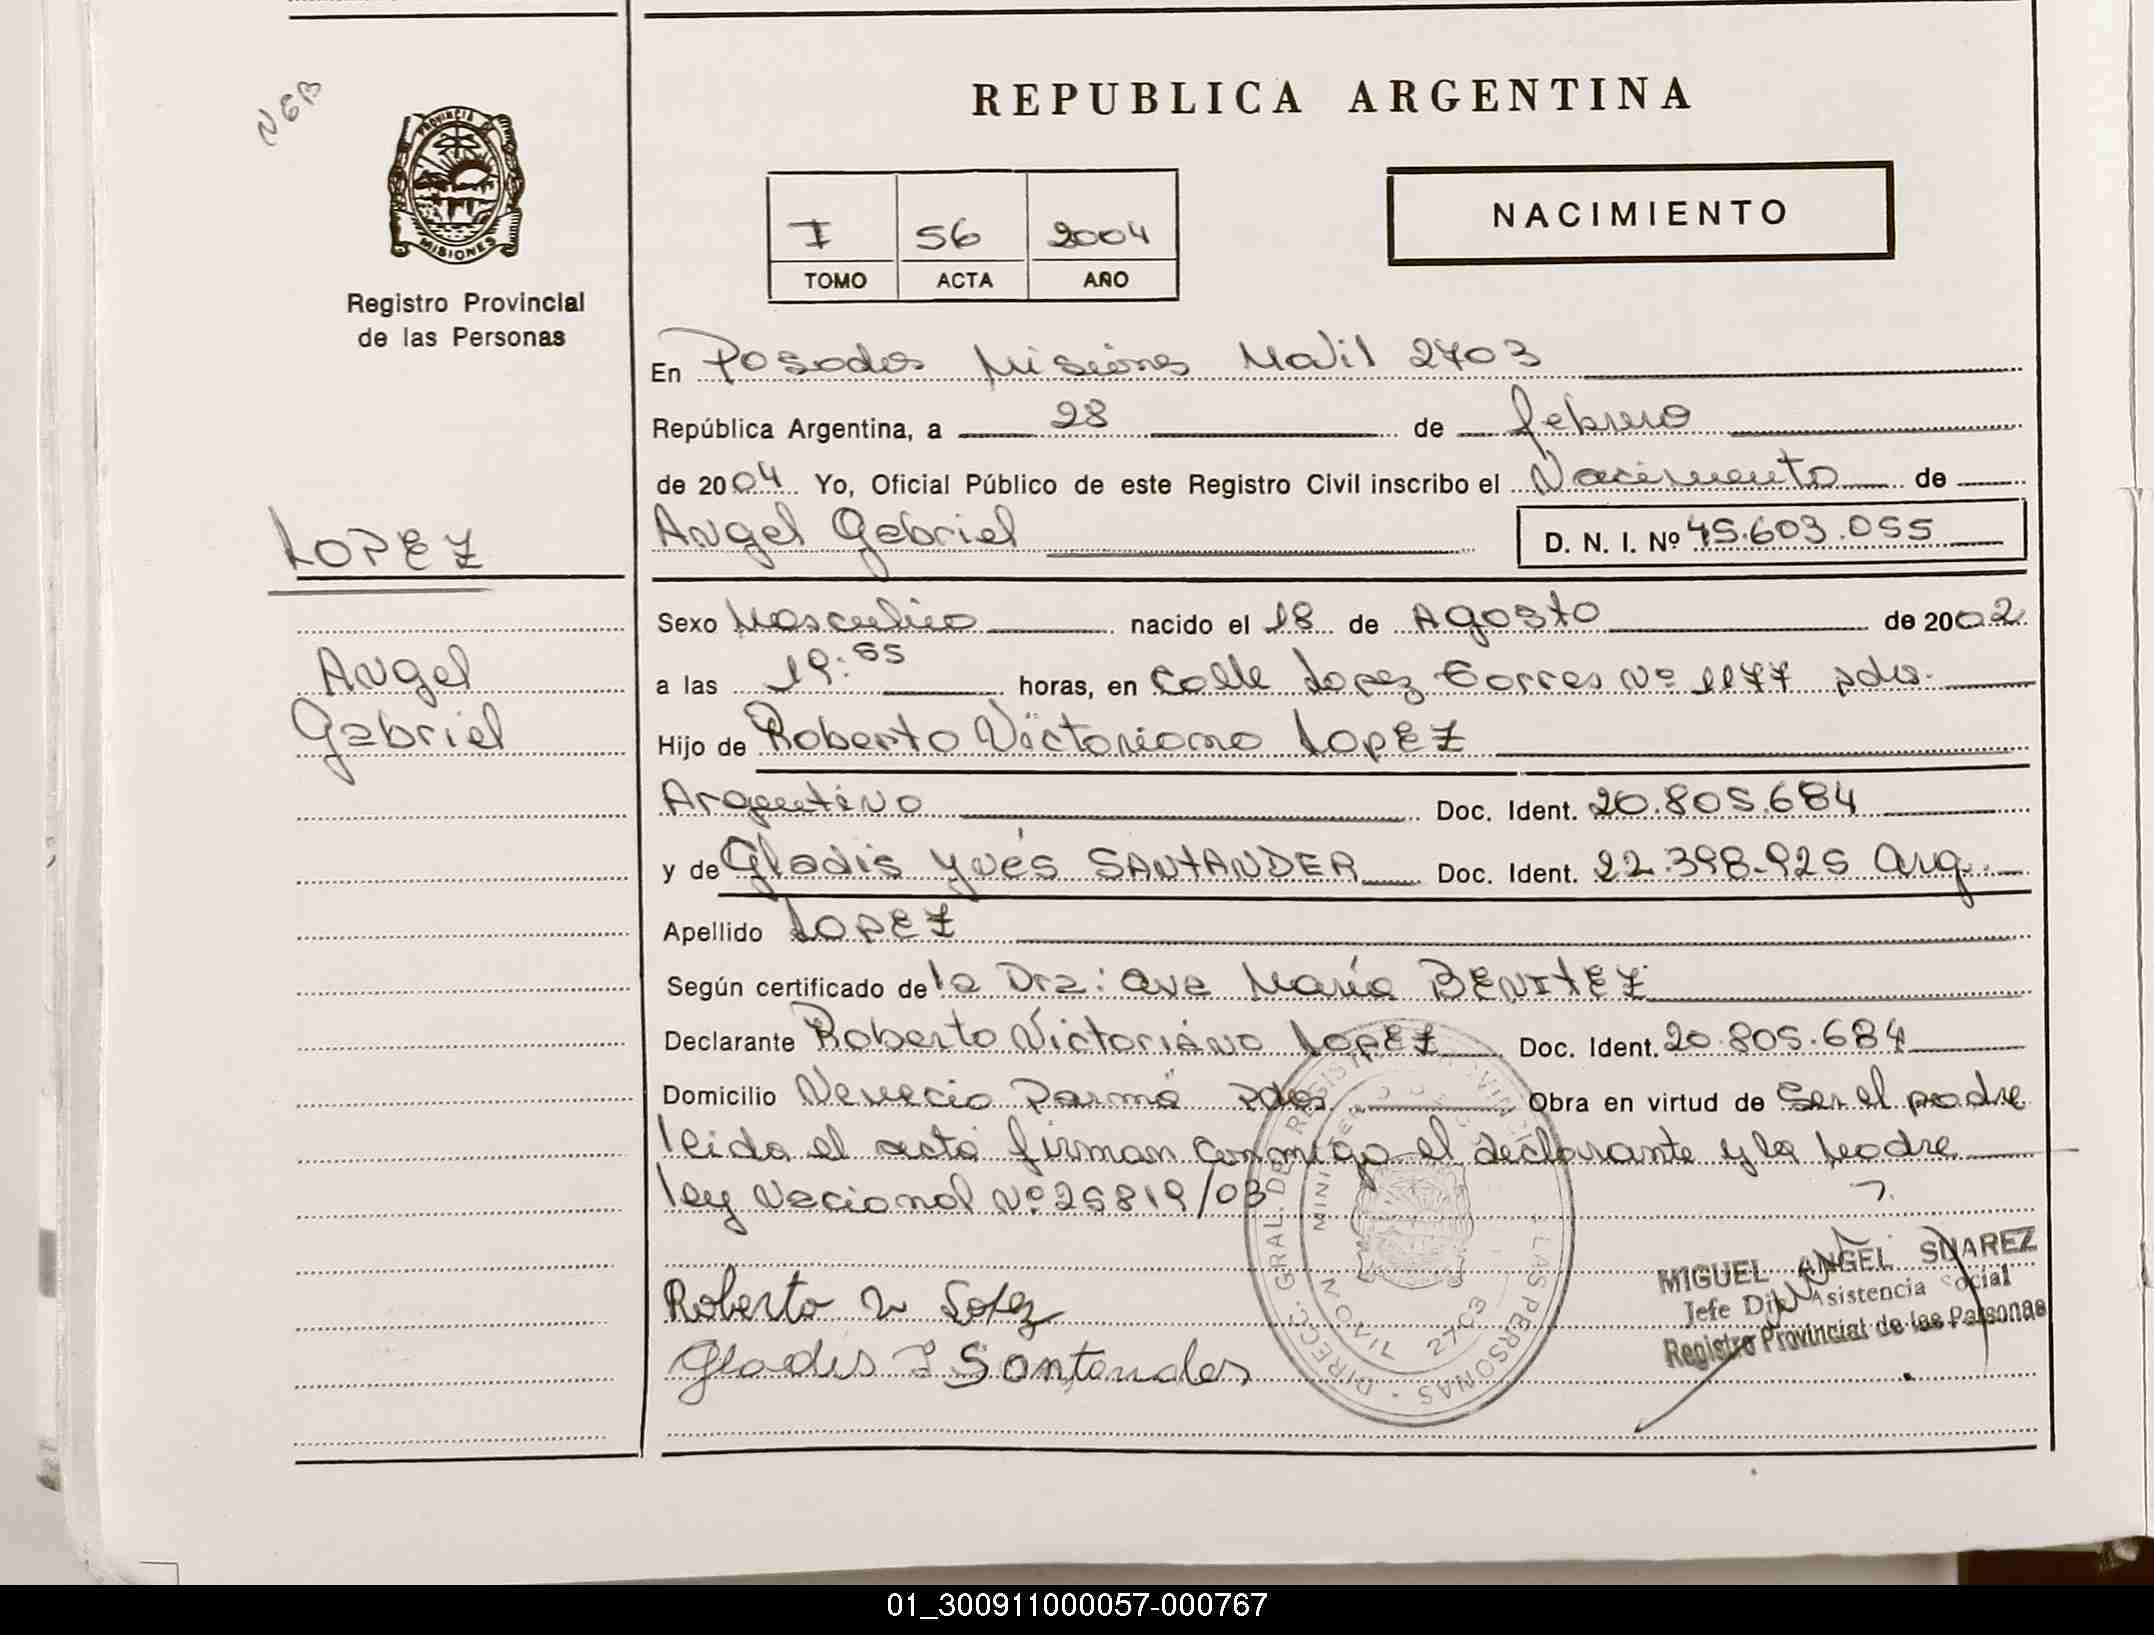 REPUBLICA ARGENTINA
NGB
PROVINCIA DE
MISIONES
Registro Provincial
de las Personas
NACIMIENTO
I 56 2004
TOMO ACTA AÑO
En Posadas Misiones Movil 2703
República Argentina, a 28 de febrero
de 2004 Yo, Oficial Público de este Registro Civil inscribo el Nacimiento de
Angel Gabriel D. N. I. Nº 45.603.055
LOPEZ
Angel
Gabriel
Sexo Masculino nacido el 18 de Agosto de 2002
a las 19:55 horas, en Calle Lopez Torres Nº 1177 pdas.
Hijo de Roberto Victoriano LOPEZ
Argentino Doc. Ident. 20.805.684
y de Gladis Ynés SANTANDER Doc. Ident. 22.398.925 Arg.
Apellido LOPEZ
Según certificado de la Dra: Ana María BENITEZ
Declarante Roberto Victoriano LOPEZ Doc. Ident. 20.805.684
Domicilio Nemecio Parma Pdas. Obra en virtud de Ser el padre
leida el acta firman conmigo el declarante y la Madre
ley Nacional Nº 25819/03
Roberto V Lopez
Gladis I Santander
DIRECC. GRAL. DEL REGISTRO PROVINCIAL DE LAS PERSONAS
MOVIL 2703
MIGUEL ANGEL SUAREZ
Jefe Div. Asistencia Social
Registro Provincial de las Personas
01_300911000057-000767